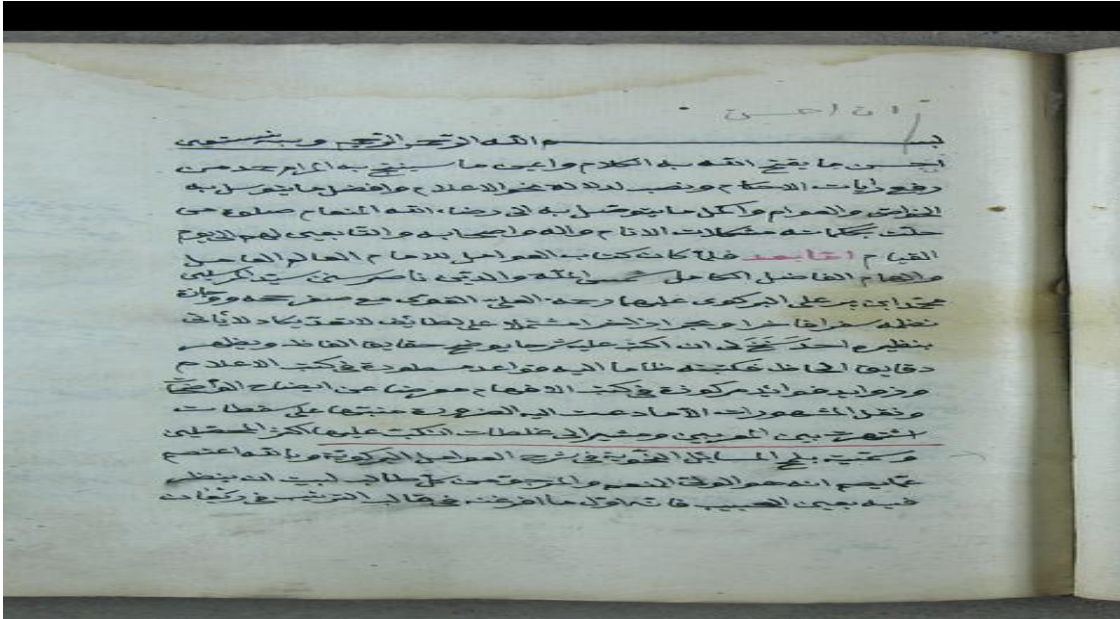 ان احسن
بسم الله الرحمن الرحيم وبه نستعين
احسن ما يفتح الله به الكلام وايمن ما يستنجح به المرام حمد من
رفع رايات الاحكام ونصب لدلالة نحو الاعلام وافضل ما يتوسل به
الخواص والعوام واكمل ما يتوصل به الى رضاء الله المنعام صلوة من
حلت بكلماته مشكلات الانام واله واصحابه والتابعين لهم الى يوم
القيام اما بعد فلما كان كتاب العوامل للامام العالم العامل
والهمام الفاضل الكامل شمس الملة والدين ناصر سنن سيد المرسلين
محمد ابن بير على البركوى عليه رحمة العلى القوى مع صغر حجمه ووجازة
نظمه سفرا فاخرا وبحرا زاخرا مشتملا على لطائف لا تعد يكاد لا يأتى
بنظيره احد سنح لى ان اكتب عليه شرحا يوضح حقايق الفاظه ويظهر
دقايق الحاظه فكتبته ضاما اليه قواعد مسطورة فى كتب الاعلام
وزوايد فوائد مركوزة فى كتب الافهام معرضا عن ايضاح الواضحات
ونقل المشهورات الا ما دعت اليه الضرورة منبها على سقطات
اشتهرت بين المعربين ومشيرا الى غلطات انكب عليها اكثر المحصلين
وسميته بلج المسايل النحوية فى شرح العوامل البركوية وبالله اعتصم
عما يصم انه هو الولى النعم والمرجو من كل طالب لبيب ان ينظر
فيه بعين الحبيب فانه اول ما افرغت فى قالب الترتيب